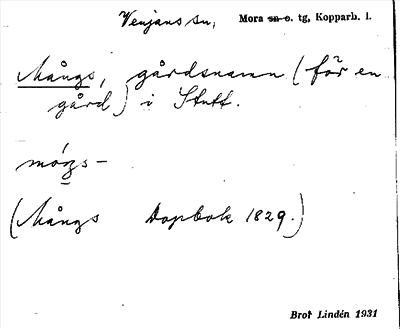 Venjans sn, Mora sn o. tg, Kopparb. l.
Mångs, gårdsnamn (för en
gård) i Stutt.
(Mångs Dopbok 1829.)
Bror Lindén 1931